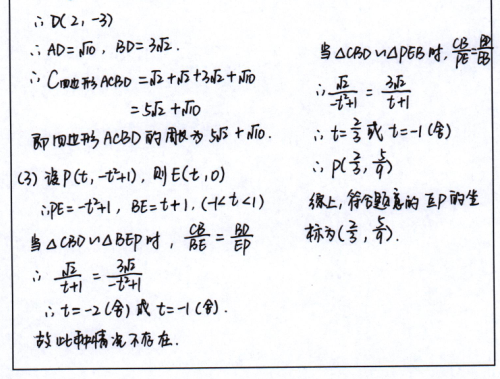 ∴ D(2, -3)
∴ AD=√10, BD=3√2.
∴ C四边形ACBD=√2+√2+3√2+√10
=5√2+√10
即四边形ACBD的周长为5√2+√10.
(3) 设P(t, -t²+1), 则E(t, 0)
∴PE=-t²+1, BE=t+1, (-1<t<1)
当△CBD∽△BEP时, CB/BE=BD/EP
∴ √2/(t+1)=3√2/(-t²+1)
∴ t=-2(舍)或t=-1(舍).
故此种情况不存在.
当△CBD∽△PEB时, CB/PE=BD/EB
∴ √2/(-t²+1)=3√2/(t+1)
∴ t=2/3或t=-1(舍)
∴ P(2/3, 5/9)
综上, 符合题意的点P的坐
标为(2/3, 5/9).